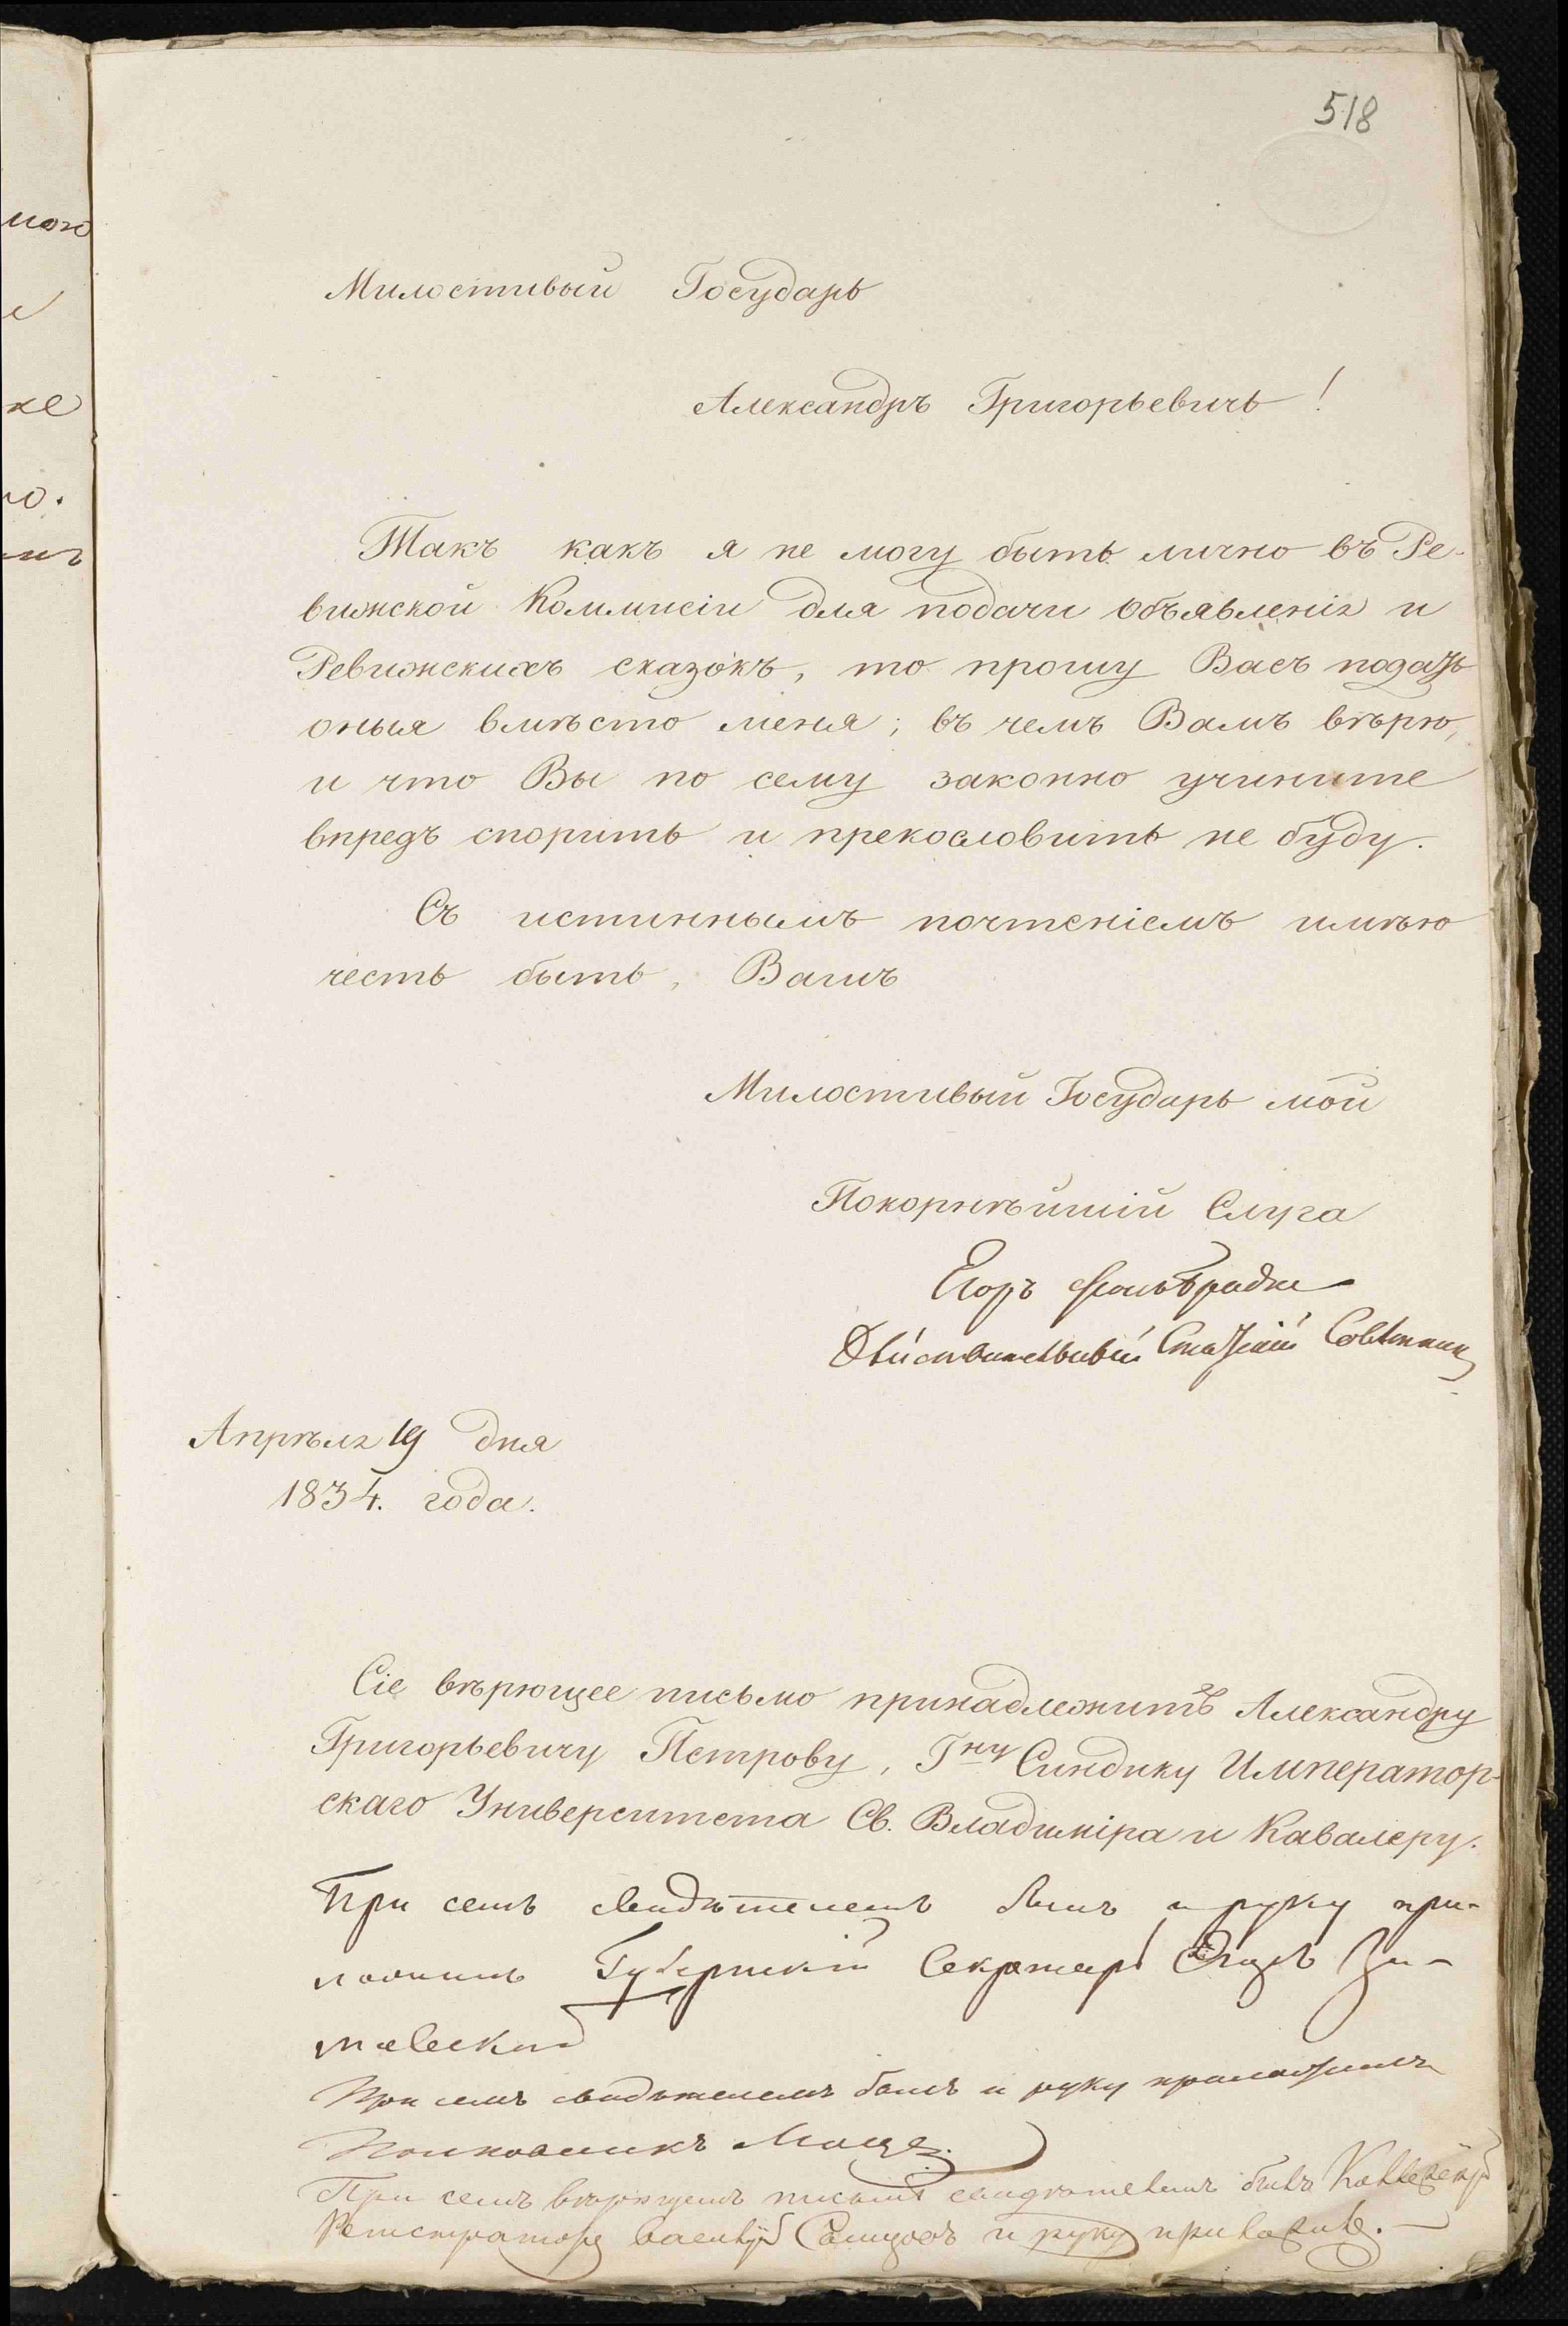 518
Милостивый Государь
Александръ Григорьевичь!
Такъ какъ я не могу быть лично въ Ре-
вижской Коммисіи для подачи объявленія и
Ревижскихъ сказокъ, то прошу Васъ подать
оныя вмѣсто меня; въ чемъ Вамъ вѣрю,
и что Вы по сему законно учините
впредъ спорить и прекословить не буду.
Съ истиннымъ почтеніемъ имѣю
честь быть, Вашъ
Милостивый Государь мой
Покорнѣйшій Слуга
Егоръ фонъ Брадке
Дѣйствительный Статскій Совѣтникъ
Апрѣля 19 дня
1834. года.
Сіе вѣрющее письмо принадлежитъ Александру
Григорьевичу Петрову, Гну Синдику Император-
скаго Университета Св. Владиміра и Кавалеру.
При семъ свидѣтелемъ былъ и руку при-
ложилъ Губернскій Секретарь
При семъ свидѣтелемъ былъ и руку приложилъ
Полковникъ
При семъ вѣрющемъ письмѣ свидѣтелемъ былъ Коллежскій
Регистраторъ Василій и руку приложилъ.